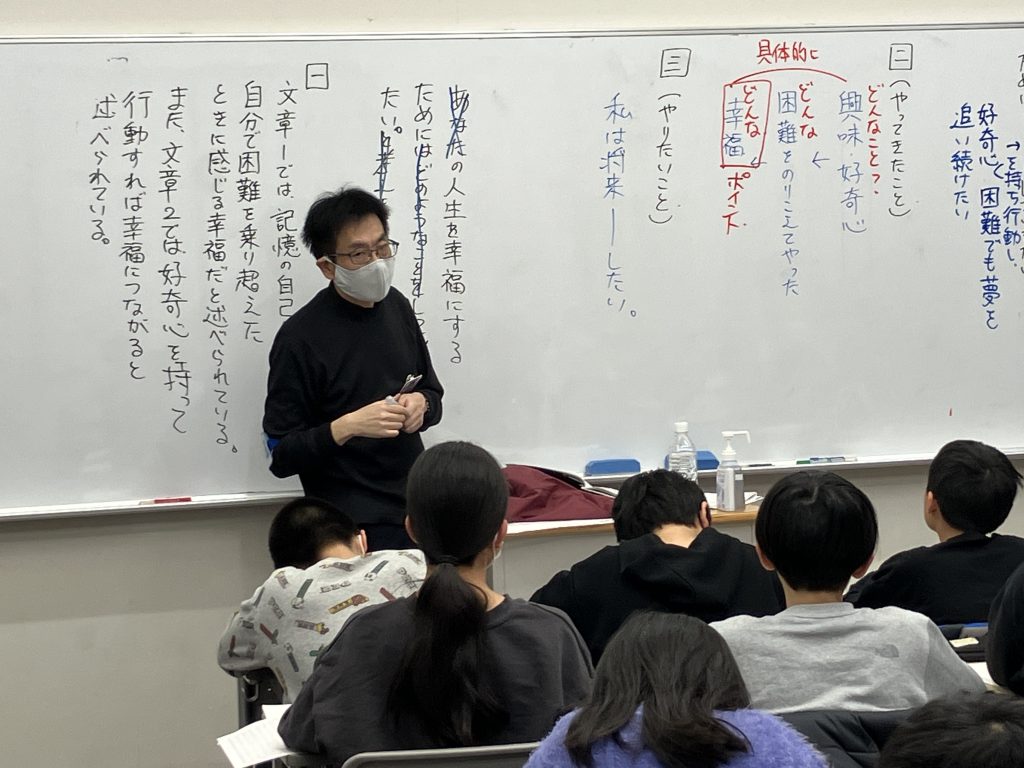 好奇心で困難でも夢を
追い続けたい
二 (やってきたこと)
どんなこと？
興味・好奇心
具体的に
どんな
困難をのりこえてやった
どんな
幸福
ポイント
三 (やりたいこと)
私は将来―したい。
の人生を幸福にする
ためには
たい。
一
文章一では、記憶の自己
自分で困難を乗り超えた
ときに感じる幸福だと述べられている。
また、文章2では、好奇心を持って
行動すれば幸福につながると
述べられている。